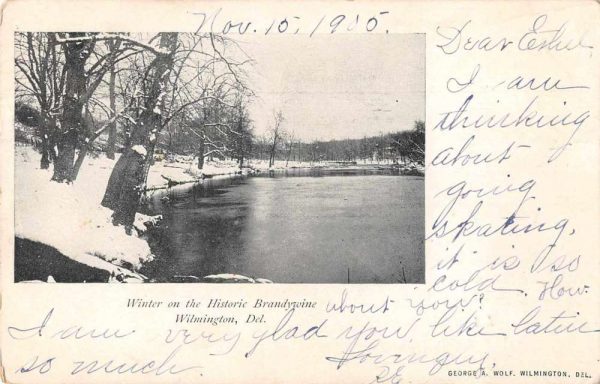 Nov. 15, 1905.
Dear Ethel,
I am
thinking
about
going
skating.
it is so
cold. How
about you?
Winter on the Historic Brandywine
Wilmington, Del.
I am very glad you like latin
so much.
GEORGE A. WOLF, WILMINGTON, DEL.